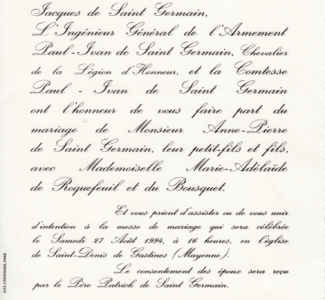 Jacques de Saint Germain,
L'Ingénieur Général de l'Armement
Paul-Ivan de Saint Germain, Chevalier
de la Légion d'Honneur, et la Comtesse
Paul - Ivan de Saint Germain
ont l'honneur de vous faire part du
mariage de Monsieur Anne-Pierre
de Saint Germain, leur petit-fils et fils,
avec Mademoiselle Marie-Adélaïde
de Roquefeuil et du Bousquet.
Et vous prient d'assister ou de vous unir
d'intention à la messe de mariage qui sera célébrée
le Samedi 27 Août 1994, à 16 heures, en l'église
de Saint-Denis de Gastines (Mayenne).
Le consentement des époux sera reçu
par le Père Patrick de Saint Germain.